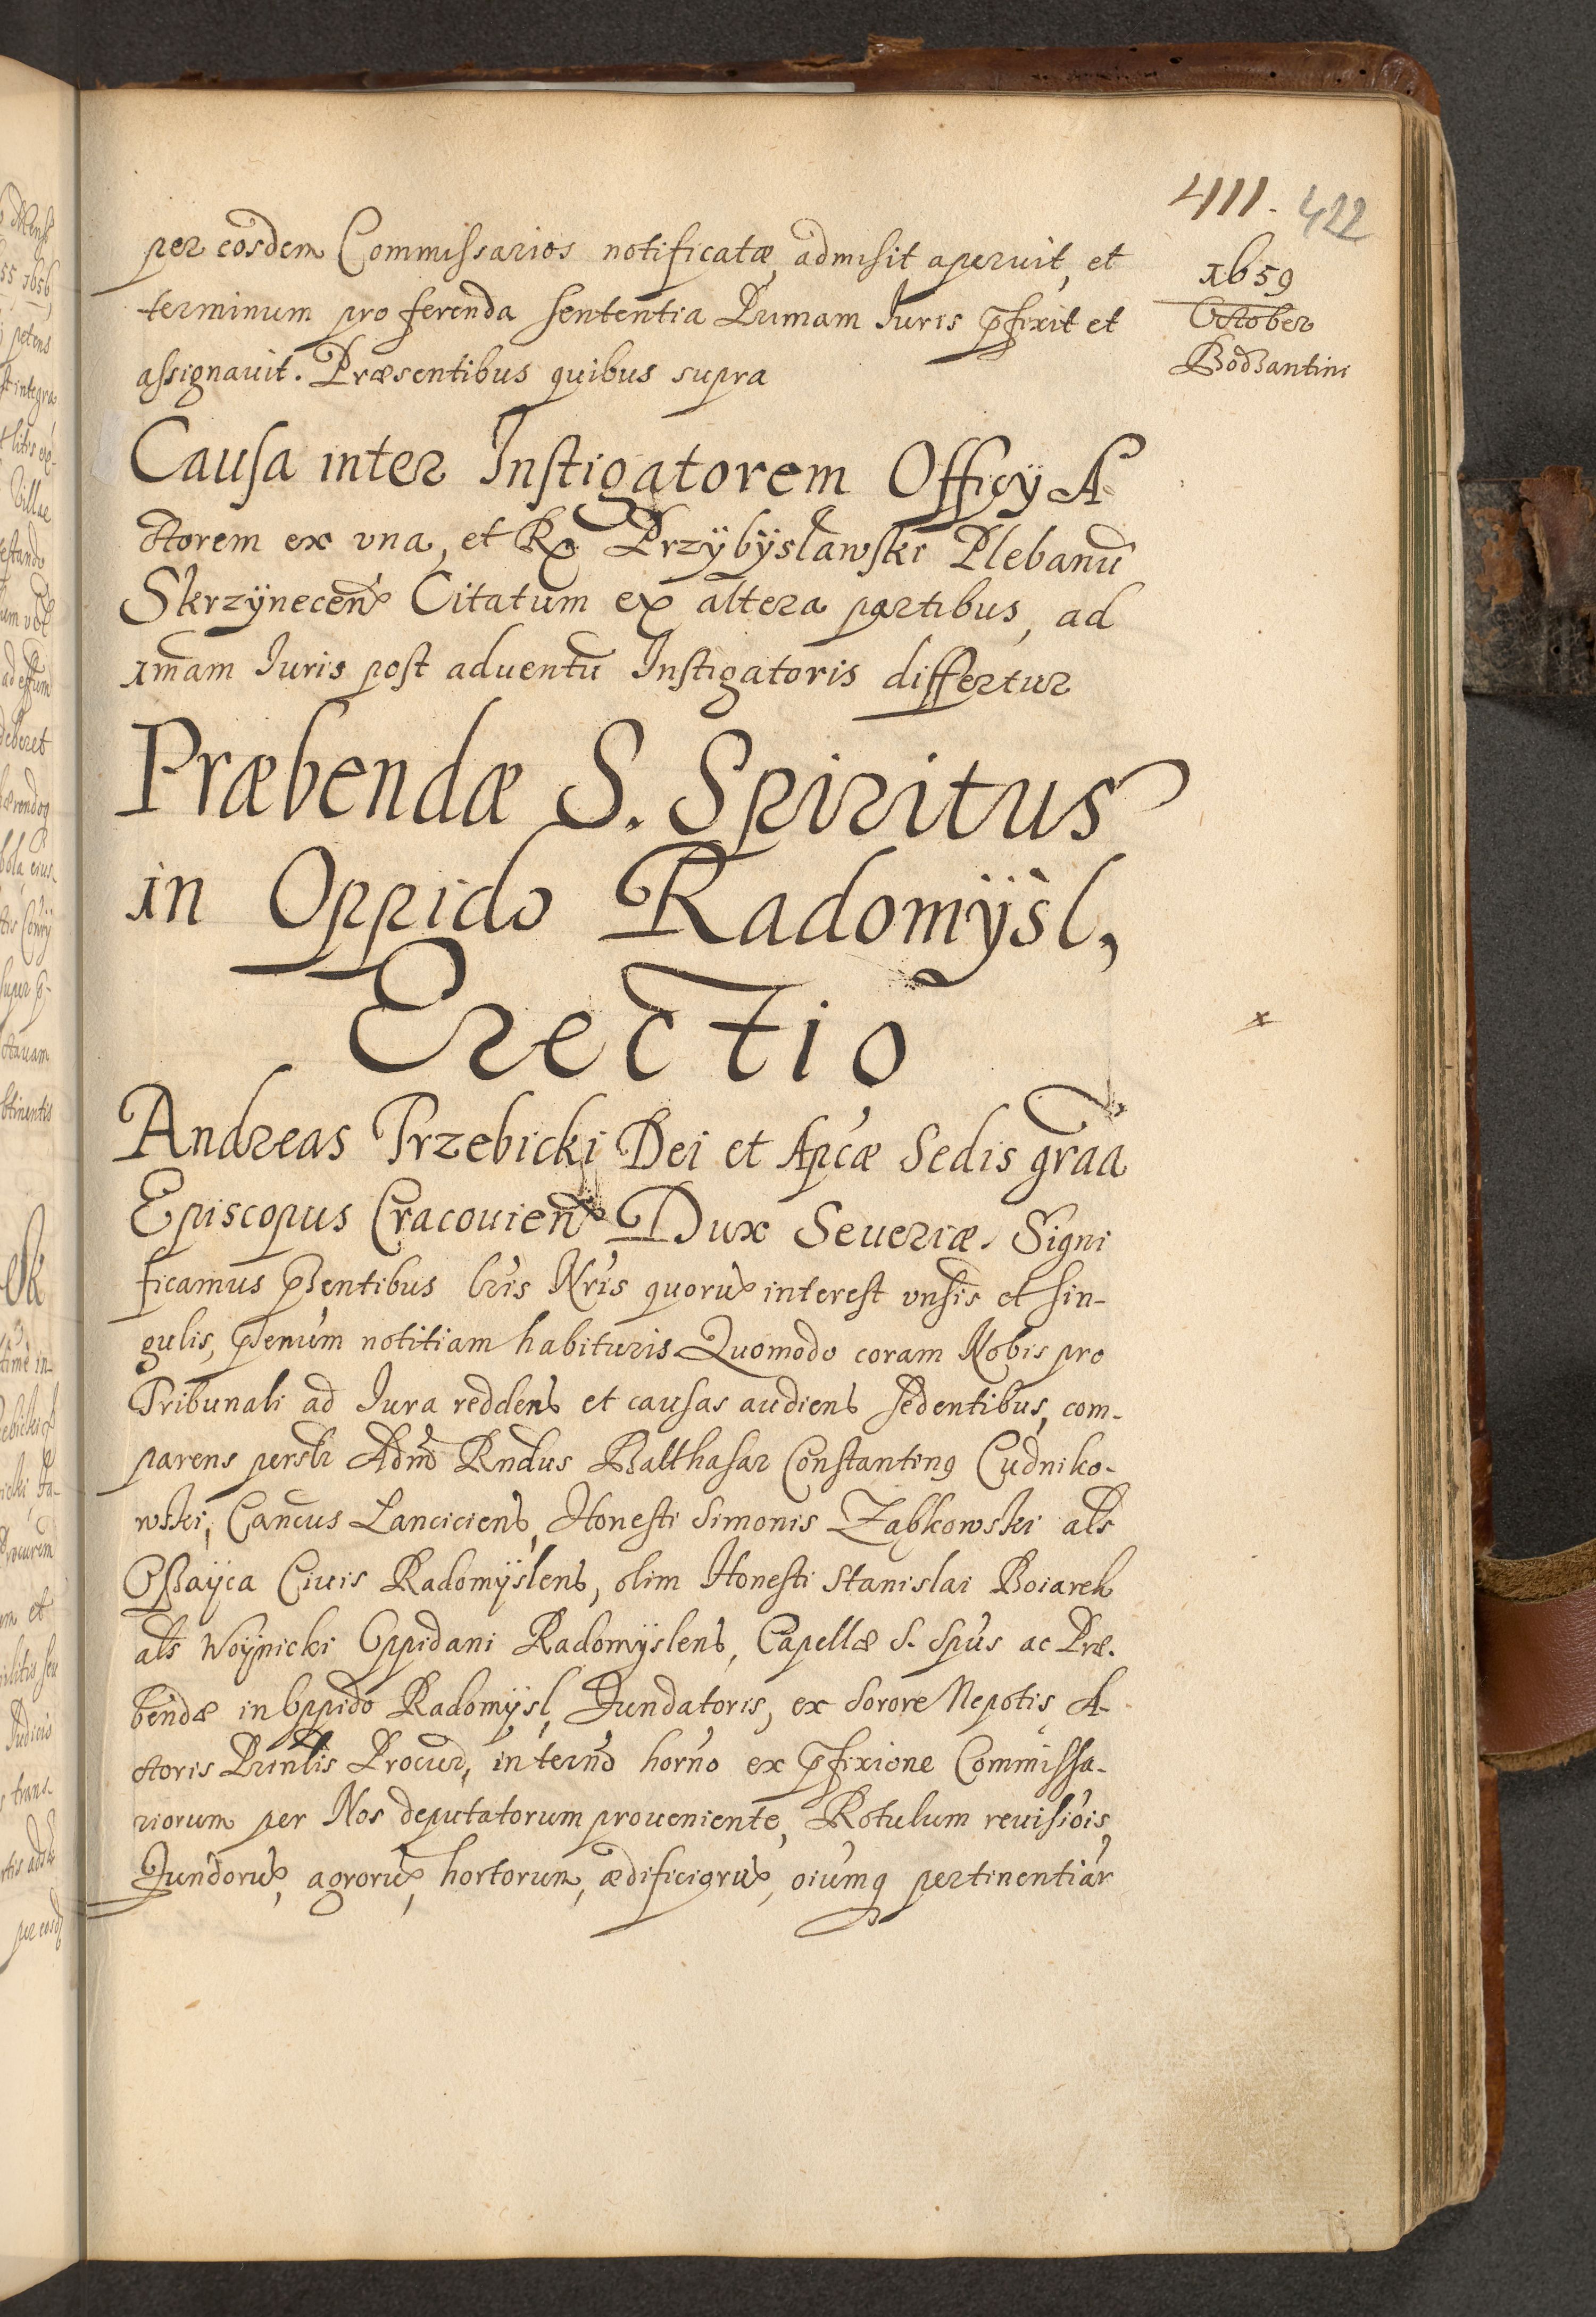 411. 422
1659
October
Bodzantini
per eosdem Commissarios notificatæ, admisit aperuit, et
terminum pro ferenda sententia Primam Iuris pfixit et
assignauit. Præsentibus quibus supra
Causa inter Instigatorem Officÿ A
ctorem ex vna, et R. Przÿbÿsławski Plebanũ
Skrzÿnecen̄ Citatum ex altera partibus, ad
1mam Iuris post aduentũ Instigatoris differtur
Præbendæ S. Spiritus
in Oppido Radomÿsl,
Erectio
Andreas Trzebicki Dei et Apcæ Sedis graa
Episcopus Cracouien̄ Dux Seueriæ. Signi
ficamus pñtibus lris Nris quorũ interest vnsis et sin-
gulis, pñtium notitiam habituris Quomodo coram Nobis pro
Tribunali ad Iura reddens et causas audiens sedentibus, com-
parens perslr Admd Rndus Balthasar Constantinus Cudniko-
wski, Cancus Lanciciens, Honesti Simonis Ząbkowski als
Ciuis Radomÿslens, olim Honesti Stanislai Boiarek
als Woÿnicki Oppidani Radomÿslens, Capellæ S. Spus ac Præ-
bendæ in Oppido Radomÿsl, Fundatoris, ex Sorore Nepotis A-
ctoris Prinlis Procur, in termo horno ex pfixione Commissa-
riorum per Nos deputatorum proueniente, Rotulum reuisiois,
Fundorũ, agrorũ, hortorum, ædificiorũ, oiumq pertinentiar